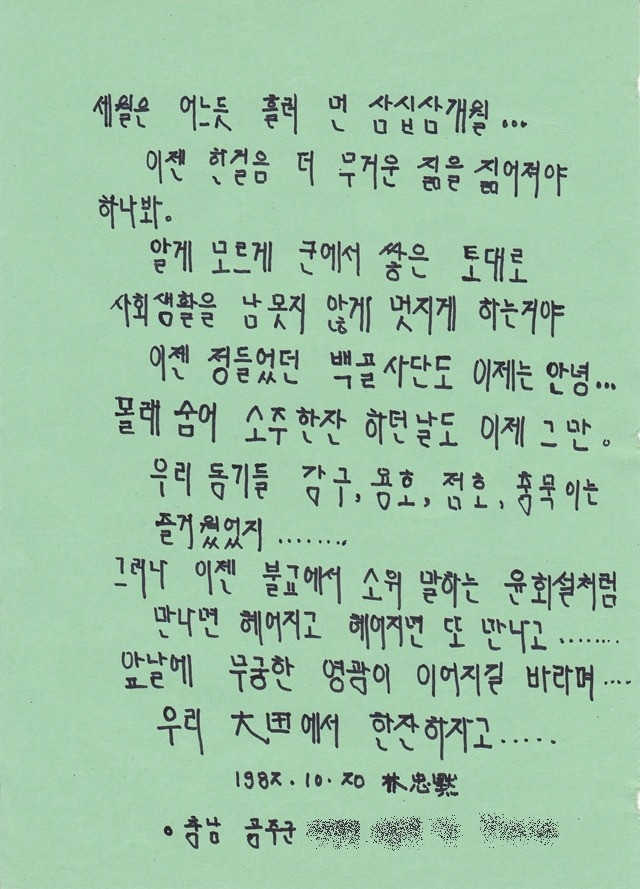 세월은 어느듯 흘러 먼 삼십삼개월...
이젠 한걸음 더 무거운 짊을 짊어져야
하나봐。
알게 모르게 군에서 쌓은 토대로
사회생활을 남못지 않게 멋지게 하는거야
이젠 정들었던 백골사단도 이제는 안녕...
몰래 숨어 소주한잔 하던날도 이제 그만。
우리 동기들 감구, 용호, 점호, 충묵이는
즐거웠었지 ........
그러나 이젠 불교에서 소위 말하는 윤회설처럼
만나면 헤어지고 헤어지면 또 만나고 .......
앞날에 무궁한 영광이 이어지길 바라며....
우리 大田에서 한잔하자고.....
1982.10.20 林忠默
。충남 공주군